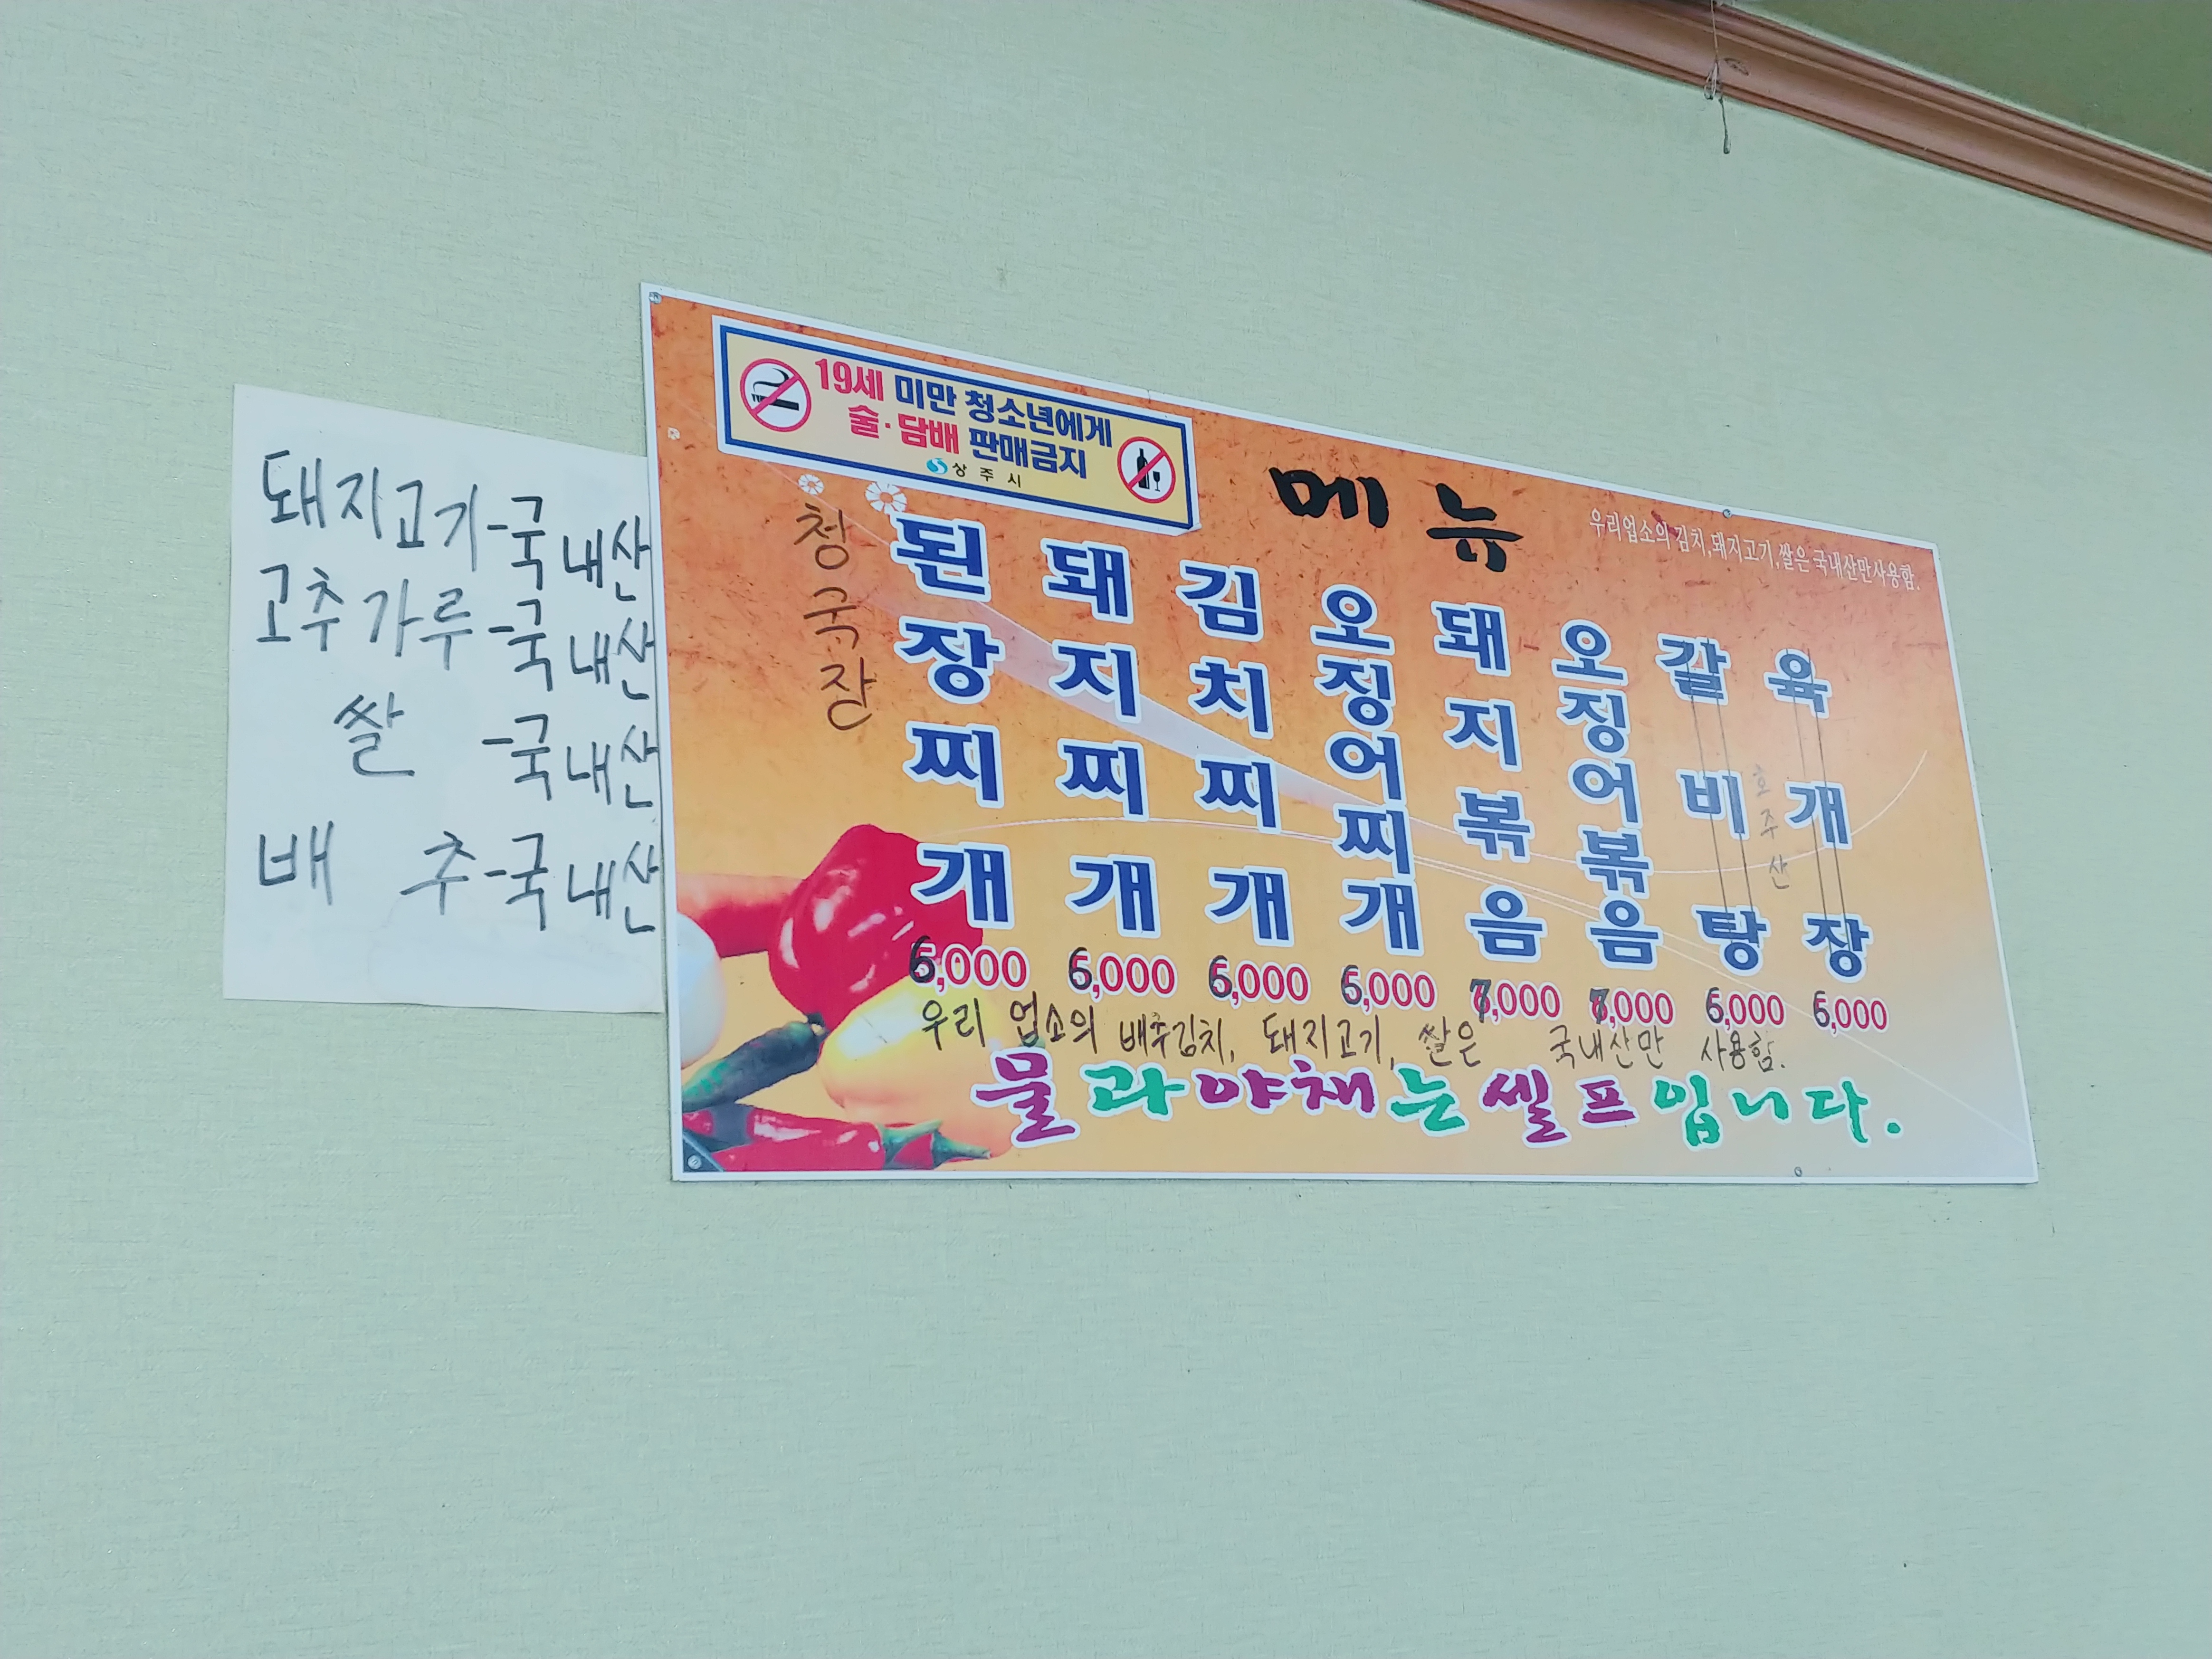 돼지고기-국내산
고추가루-국내산
쌀 -국내산
배 추-국내산
19세 미만 청소년에게
술·담배 판매금지
상주시
메뉴
우리업소의 김치,돼지고기,쌀은 국내산만사용함.
청국장
된장찌개 6,000
돼지찌개 6,000
김치찌개 6,000
오징어찌개 6,000
돼지볶음
오징어볶음
갈비탕 6,000
호주산
육개장 6,000
우리 업소의 배추김치, 돼지고기, 쌀은 국내산만 사용함.
물과야채는셀프입니다.